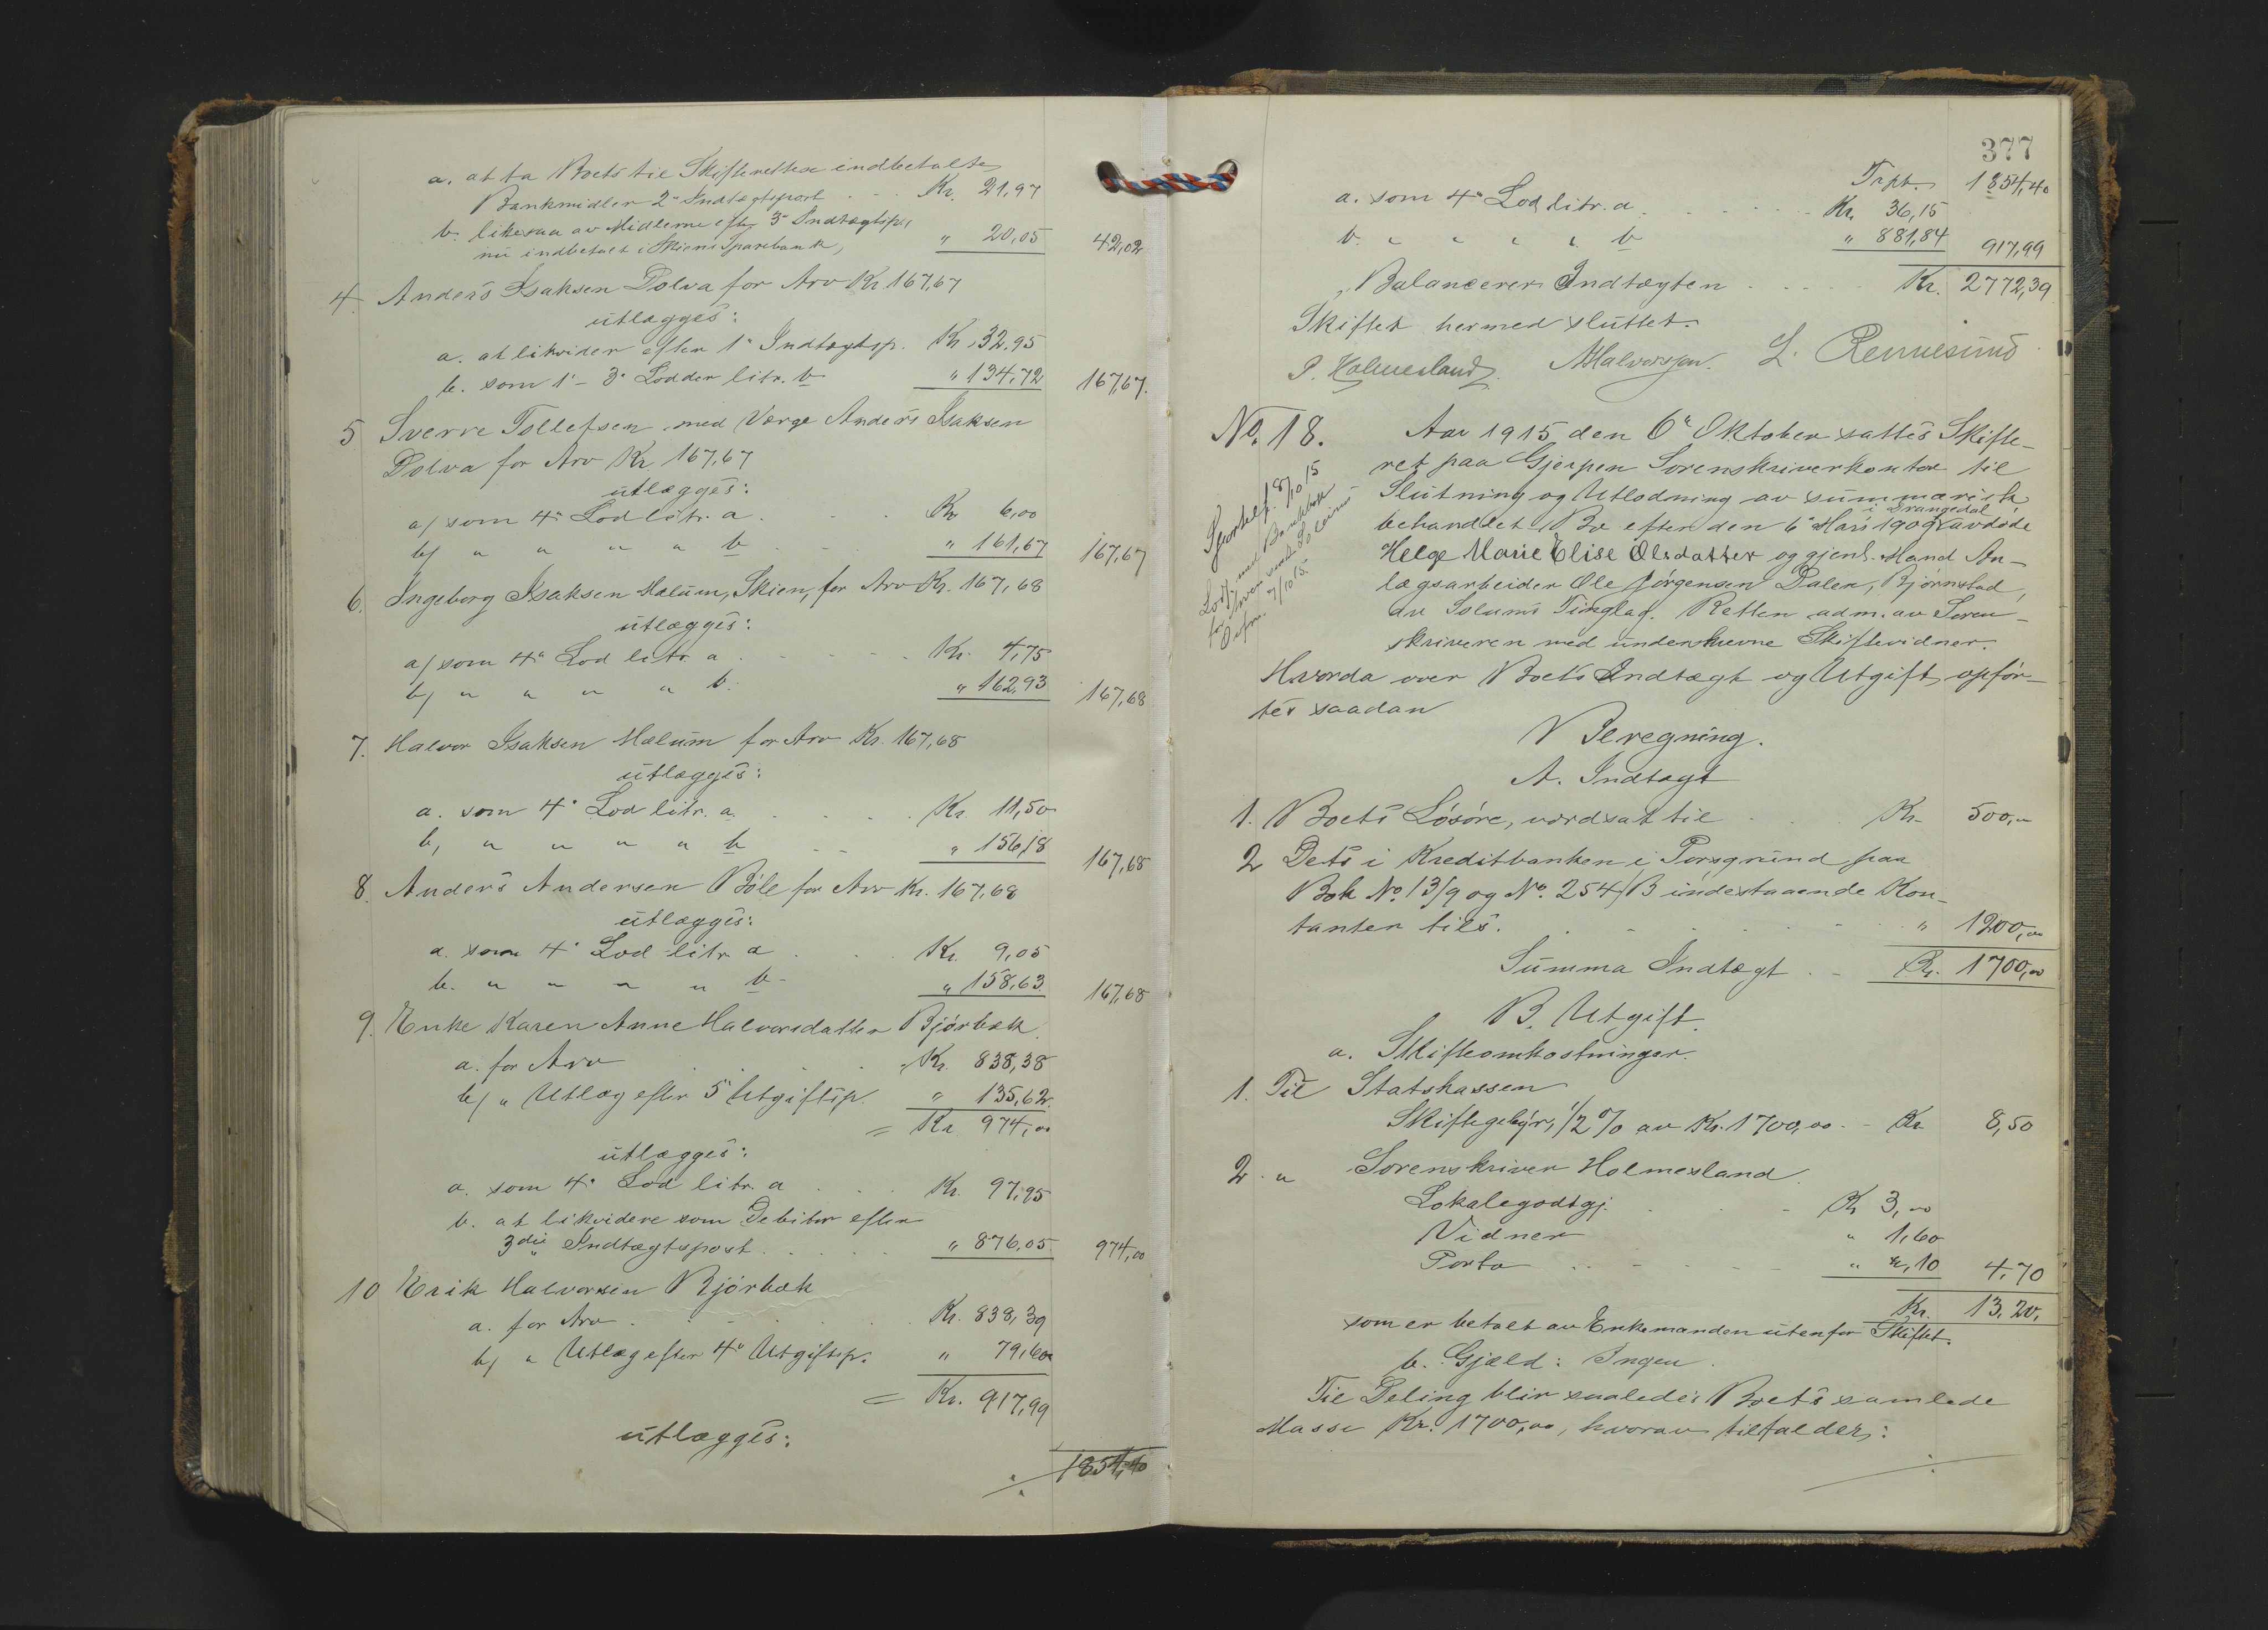 a. at ta Boets til Skifteretten indbetalte
Bankmidler 2' Indtægtspost Kr. 21,97
b. likesaa av Midlerne efter 3' Indtægtsp.,
nu indbetalt i Skiens Sparebank, " 20,05 42,02
4. Anders Isaksen Dolva for Arv Kr 167,67
utlægges:
a. at likvidere efter 1' Indtægtsp. Kr. 32,95
b. som 1' - 3' Lodder litr. b " 134,72 167,67.
5 Sverre Tollefsen med Værge Anders Isaksen
Dolva for Arv Kr. 167,67
utlægges:
a/ som 4' Lod litr. a Kr 6,00
b/ " " " " b " 161,67 167,67
6. Ingeborg Isaksen Mælum, Skien, for Arv Kr. 167,68
utlægges:
a/ som 4' Lod litr. a Kr. 4,75
b/ " " " " b. " 162,93 167,68
7. Halvor Isaksen Mælum for Arv Kr. 167,68
utlægges:
a. som 4' Lod litr. a. Kr. 11,50
b, " " " " b " 156,18 167,68
8. Anders Andersen Bøle for Arv Kr. 167,68
utlægges:
a. som 4' Lod litr. a Kr. 9,05
b. " " " " b. " 158,63 167,68
9. Enke Karen Anne Halvorsdatter Bjørbæk
a. for Arv Kr. 838,38
b/ " Utlæg efter 5' Utgiftsp. " 135,62
= Kr. 974,00
utlægges:
a. som 4' Lod litr. a Kr. 97,95
b. at likvidere som Debitor efter
3die Indtægtspost " 876,05 974,00
10 Erik Halvorsen Bjørbæk
a. for Arv Kr. 838,39
b/ " Utlæg efter 4' Utgiftsp. " 79,60
= Kr. 917,99
utlægges:
1854,40
377
Trpt. 1854,40
a. som 4' Lod litr. a Kr. 36,15
b. " " " " b " 881,84 917,99
Balancerer Indtægten Kr. 2772,39
Skiftet hermed sluttet.
P. Holmesland. AHalvorsen. L. Rennesund
No. 18. Aar 1915 den 6' Oktober sattes Skifte-
ret paa Gjerpen Sorenskriverkontor til
Slutning og Utlodning av summarisk
behandlet Bo efter den 6' Mars 1909 i Drangedal avdøde
Helge Marie Elise Olsdatter og gjenl. Mand An-
lægsarbeider Ole Jørgensen Dalen, Bjørnstad,
av Solums Tinglag. Retten adm. av Soren-
skriveren med underskrevne Skiftevidner.
Hvorda over Boets Indtægt og Utgift opfør-
tes saadan
Beregning.
A. Indtægt
1. Boets Løsøre, værdsat til Kr. 500,"
2 Dets i Kreditbanken i Porsgrund paa
Bok No. 13/9 og No. 254/B indestaaende Kon-
tanter tils. " 1200,00
Summa Indtægt Kr. 1700,00
B. Utgift.
a. Skifteomkostninger.
1. Til Statskassen
Skiftegebyr, 1/2 % av Kr. 1700,00 Kr 8,50
2. " Sorenskriver Holmesland
Lokalegodtgj. Kr 3,00
Vidner " 1,60
Porto " ",10 4,70
Kr. 13,20.
som er betalt av Enkemanden utenfor Skiftet.
b. Gjæld: Ingen.
Til Deling blir saaledes Boets samlede
Masse Kr. 1700,00, hvorav tilfalder: